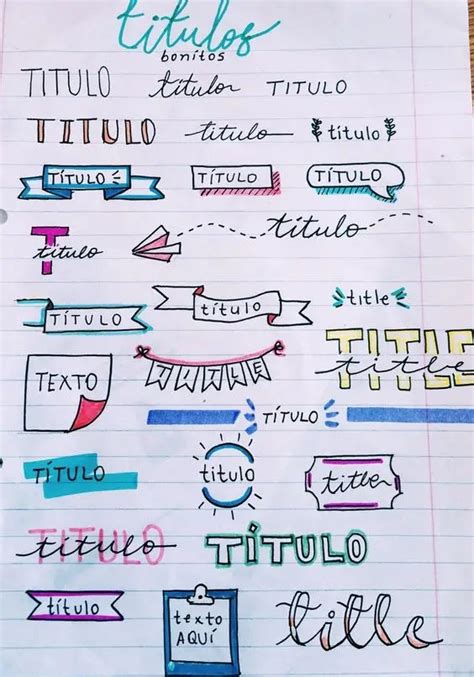 títulos
bonitos
TITULO títulor TITULO
TITULO titulo título
TÍTULO TÍTULO TÍTULO
título
título
TÍTULO título title
TEXTO TITLE TITLE
title
TÍTULO
TÍTULO titulo title
TITULO
título TÍTULO
título texto title
AQUÍ